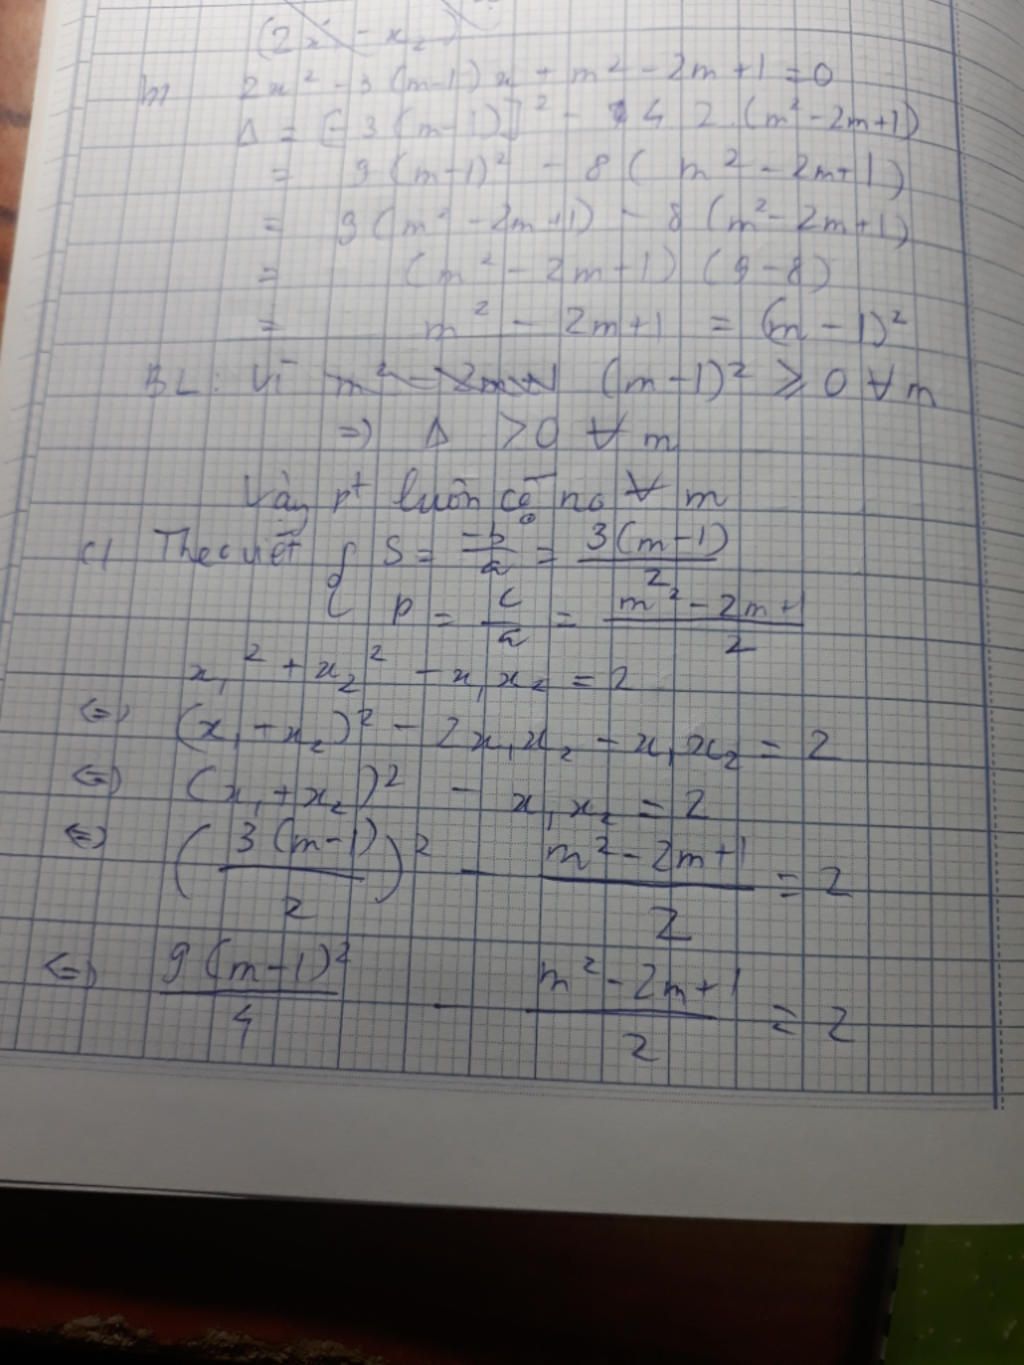 (2x₁ - x₂)
b) 2x² - 3(m-1)x + m² - 2m + 1 = 0
Δ = [-3(m-1)]² - 4 2 . (m² - 2m + 1)
= 9(m-1)² - 8(m² - 2m + 1)
= 9(m² - 2m + 1) - 8(m² - 2m + 1)
= (m² - 2m + 1)(9 - 8)
= m² - 2m + 1 = (m - 1)²
BL: Vì m² - 2m + 1 (m - 1)² ⩾ 0 ∀ m
=> Δ > 0 ∀ m
Vậy pt luôn có no ∀ m
c) Theo viét { S = -b/a = 3(m-1)/2
P = c/a = (m² - 2m + 1)/2
x₁² + x₂² - x₁x₂ = 2
<=> (x₁ + x₂)² - 2x₁x₂ - x₁x₂ = 2
<=> (x₁ + x₂)² - x₁x₂ = 2
<=> (3(m-1)/2)² - (m² - 2m + 1)/2 = 2
<=> 9(m-1)²/4 - (m² - 2m + 1)/2 = 2